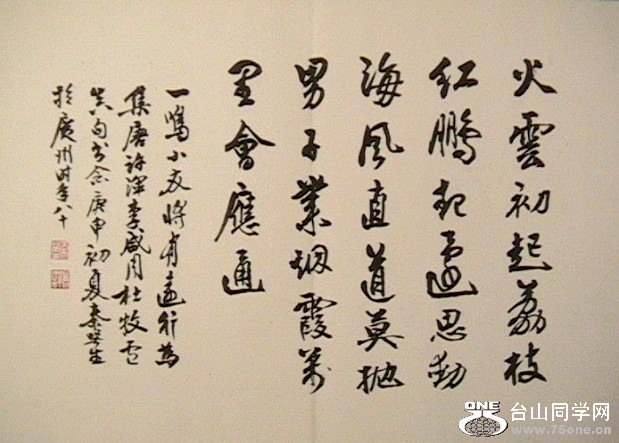 火雲初起荔枝
紅鵬起思動
海風直道莫拋
男子業烟霞萬
里會應通
一鳴小友將有遠行為
集唐許渾李咸用杜牧
句書念庚申初夏秦咢生
於廣州時年八十
ONE 台山同学网
www.75one.cn